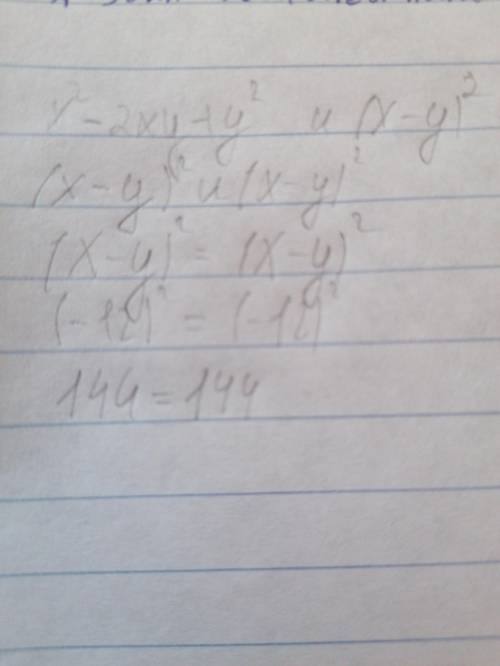 x² - 2xy + y² и (x - y)²
(x - y)² и (x - y)²
(x - y)² = (x - y)²
(-12)² = (-12)²
144 = 144